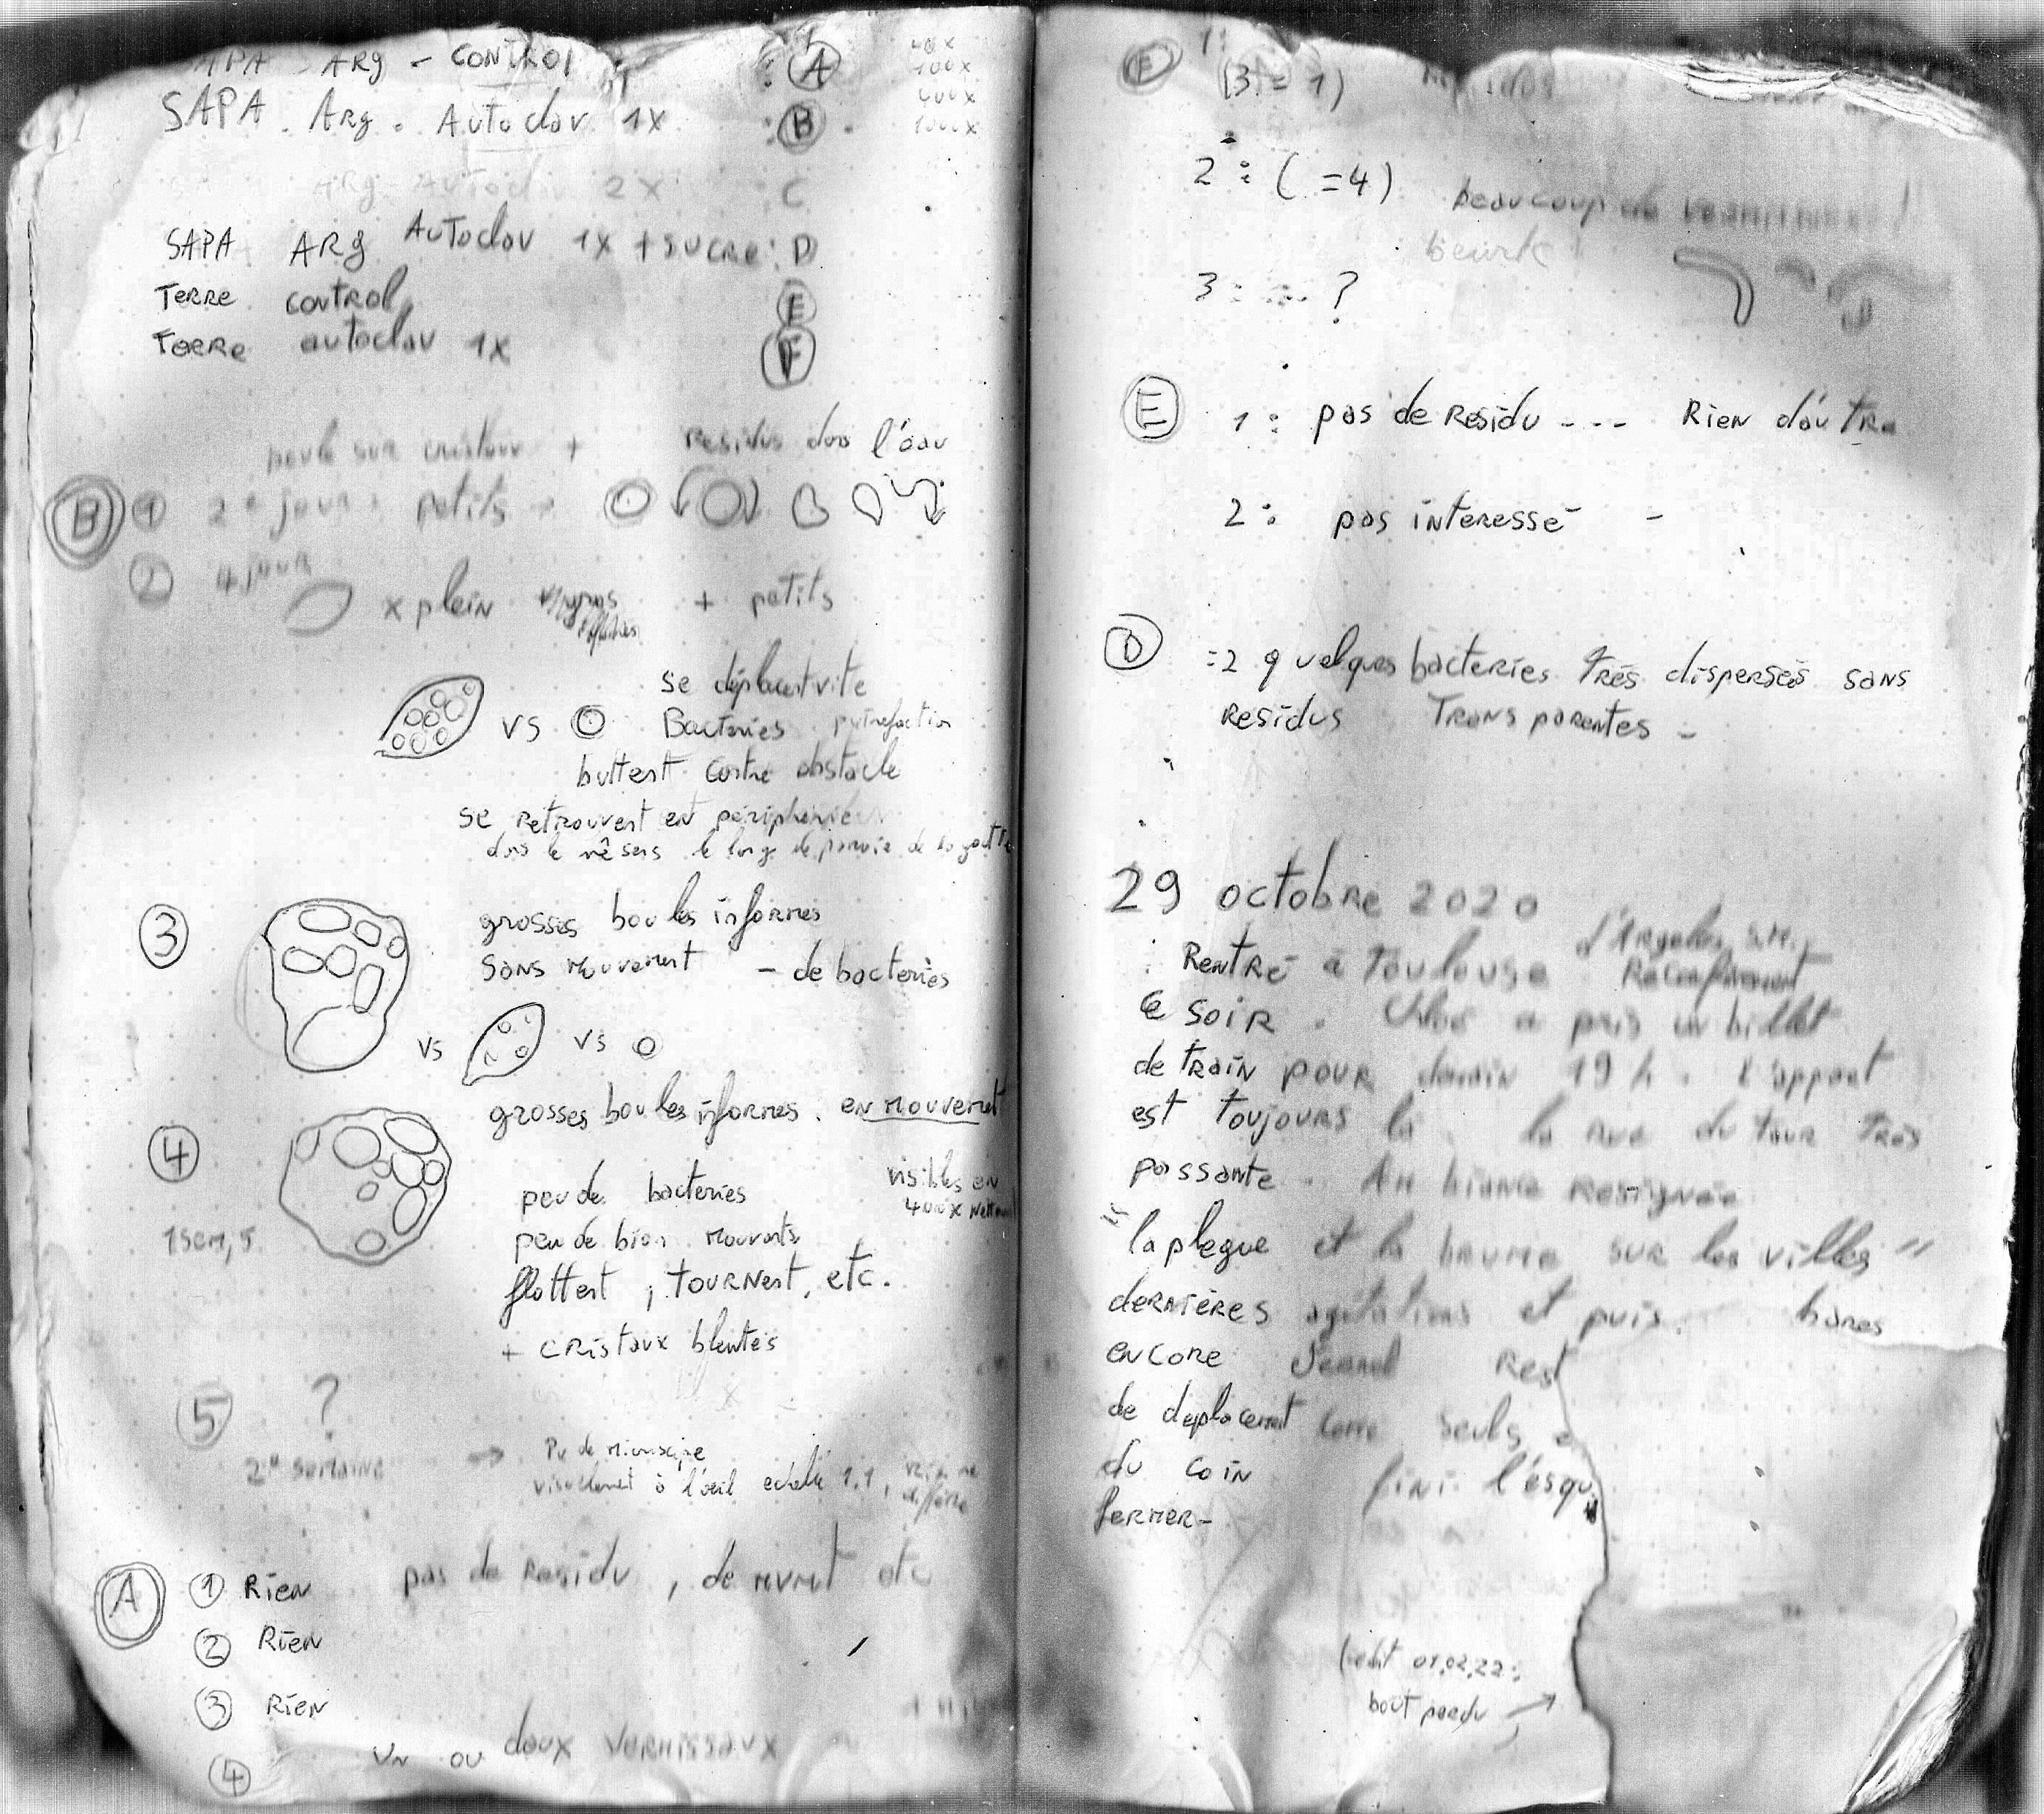 SAPA ARg - CONTROl : A
40x
100x
400x
1000x
SAPA . ARg . Autoclav 1X : B
ARg Autoclav 2X : C
SAPA ARg Autoclav 1X + SUCRE : D
TERRE CONTROL E
TERRE autoclav 1X F
residus dans l'eau
B 1 2e jour : petits
2 4 jour
x plein + petits
se déplacent vite
VS Bacteries putrefaction
buttent contre obstacle
se retrouvent en peripherie
dans le même sens le long de paroie de la goutte
3 grosses boules informes
SANS mouvement - de bacteries
VS VS
grosses boules informes . en mouvement
4
1 sem, 5
peu de bacteries
visibles en
400x
peu de bien mouvants
flottent , TOURNENT, etc.
+ CRistaux bleutés
5 ?
2e semaine
→ Pu de microscope
visuellement à l'oeil echelle 1.1, rien ne
diffère
A 1 Rien pas de residu , de mvmt etc
2 Rien
3 Rien
4 UN OU deux vermisseaux
F 1:
(3 = 1)
2 : ( =4) beaucoup de vermisseaux !
beurk !
3 : ?
E 1 : pas de Residu --- Rien d'autre
2 : pas interessé -
D :2 quelques bacteries très dispersées sans
residus Transparentes -
29 octobre 2020
: Rentré à Toulouse d'Argeles S.M.,
Reconfinement
ce soir . Chloé a pris un billet
de train pour demain 19 h . l'appart
est toujours là . la rue du taur très
passante . Ambiance resignée
" la plegue et la brume sur les villes "
dernières agitations et puis.
encore
de deplacement seuls
du coin fini l'esqu
fermer-
(edit 01.02.22 :
bout perdu →)